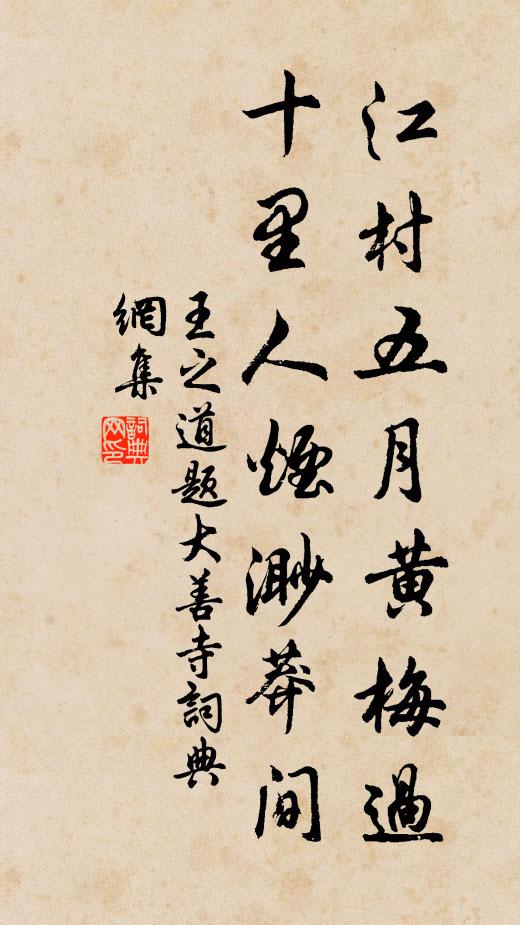 江村五月黄梅過
十里人煙渺莽間
王之道題大善寺詞典
網集
詞典
网印